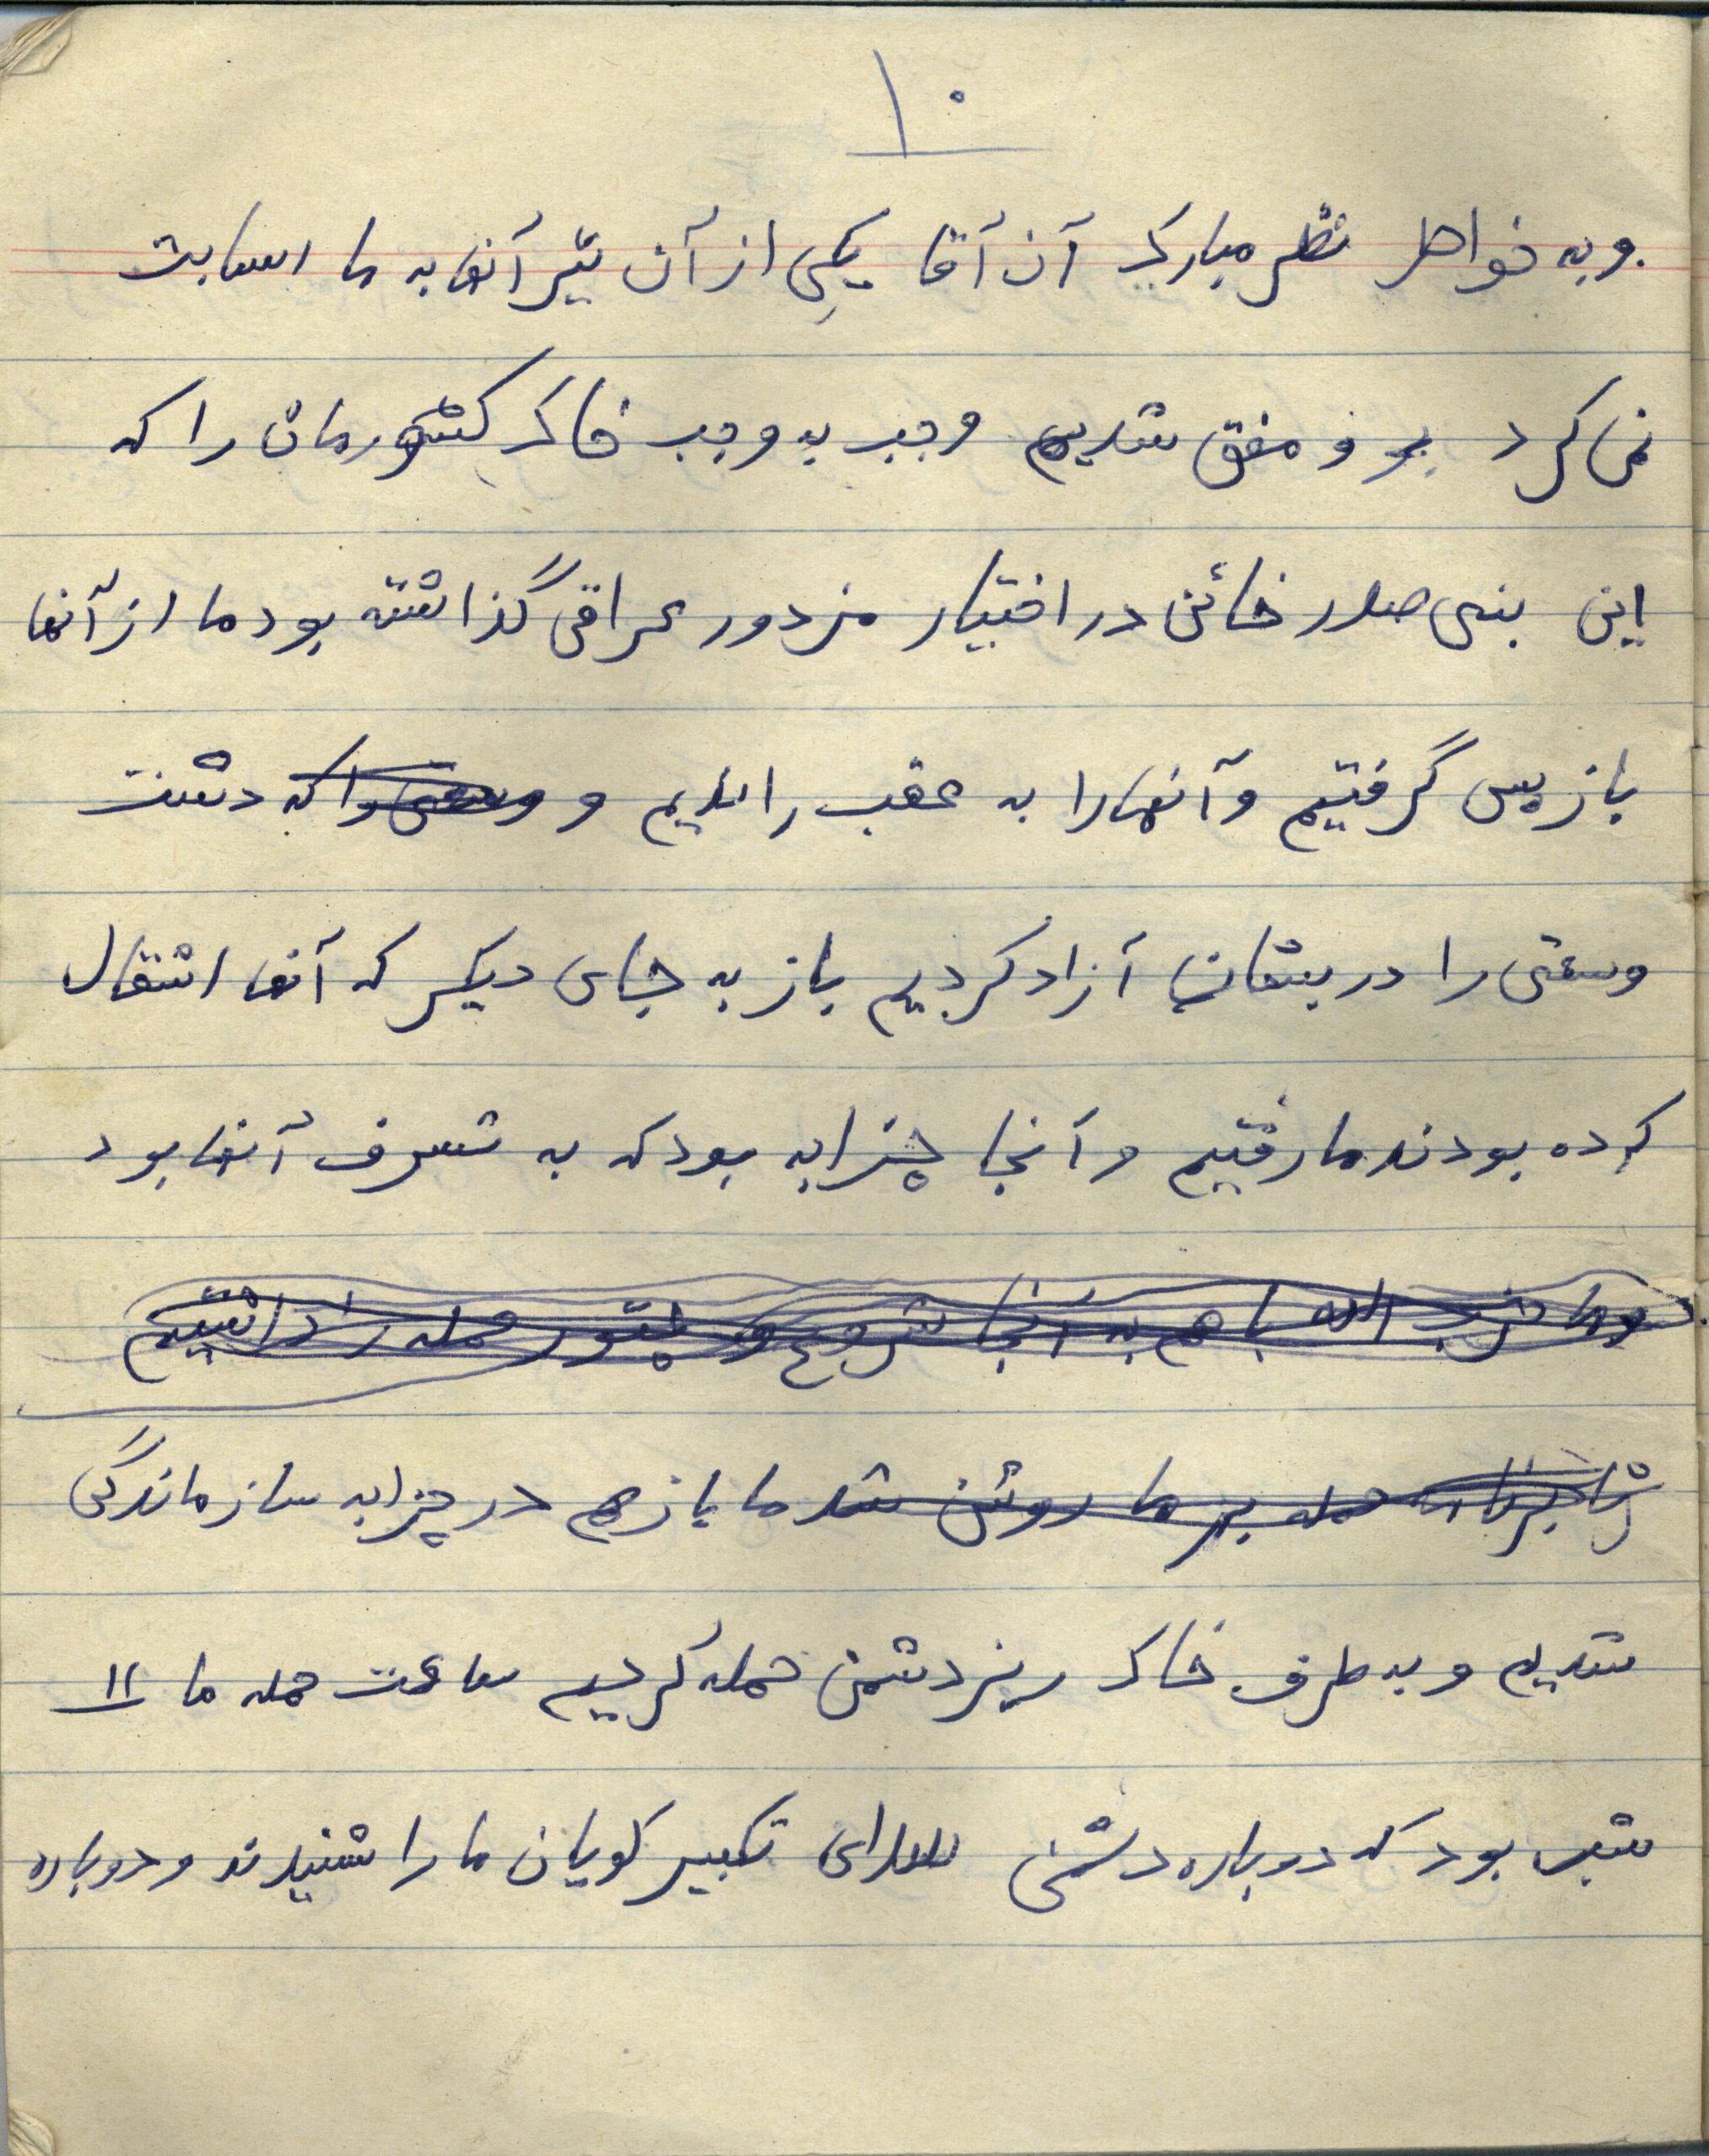 ۱۰
و به خواطر نظر مبارک آن آقا یکی از آن تیر آنها به ما اسابت
نمی کرد و موفق شدیم وجب به وجب خاک کشورمان را که
این بنی صدر خائن در اختیار مزدور عراقی گذاشته بود ما از آنها
باز پس گرفتیم و آنها را به عقب راندیم و دشت
وسعتی را در بستان آزاد کردیم باز به جای دیگر که آنها انتقال
کرده بودند ما رفتیم و آنجا چزابه بود که به تسرف آنها بود
ما باز هم در چزابه سازماندگی
شدیم و به طرف خاک ریز دشمن حمله کردیم ساعت حمله ما ۱۱
شب بود که دوباره دشمن سدای تکبیر گویان ما را شنیدند و دوباره